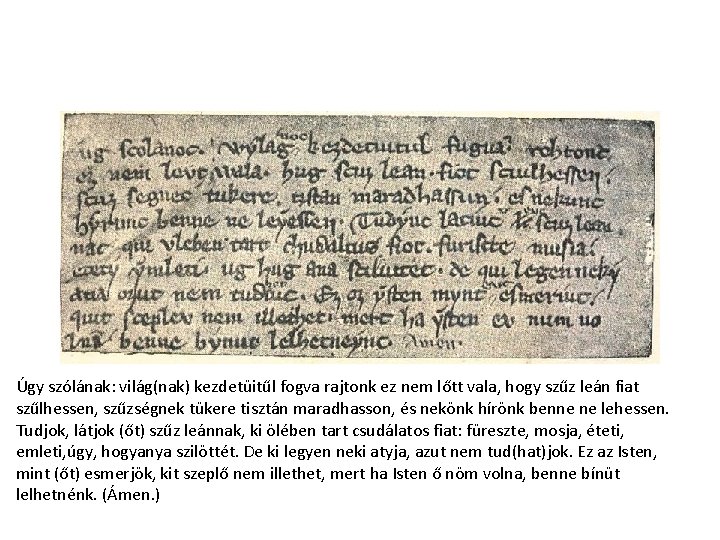 ug scolanoc. Wylag noc kezdetuitul fugua rohtonc
ez nem levt uala. hug scuz lean fiot sciulhessen.
scuz segnec tukere tistan maradhassun. es nekunc
hyrunc benne ne leyessen. Tudyuc latiuc scuz lean
nac qui vleben tart chudaltus fiot. furiscte musia.
etety ymleti. ug hug ana sciluttet. de qui legen neky
atia ozut nem tudhotiuc. Ez oz ysten mynt esmeriuc.
quit sceplev nem illethet. mert ha ysten ev num uo
benne bynut lelhetneync.
Úgy szólának: világ(nak) kezdetüitűl fogva rajtonk ez nem lőtt vala, hogy szűz leán fiat
szűlhessen, szűzségnek tükere tisztán maradhasson, és nekönk hírönk benne ne lehessen.
Tudjok, látjok (őt) szűz leánnak, ki ölében tart csudálatos fiat: füreszte, mosja, éteti,
emleti,úgy, hogyanya szilöttét. De ki legyen neki atyja, azut nem tud(hat)jok. Ez az Isten,
mint (őt) esmerjök, kit szeplő nem illethet, mert ha Isten ő nöm volna, benne bínüt
lelhetnénk. (Ámen. )